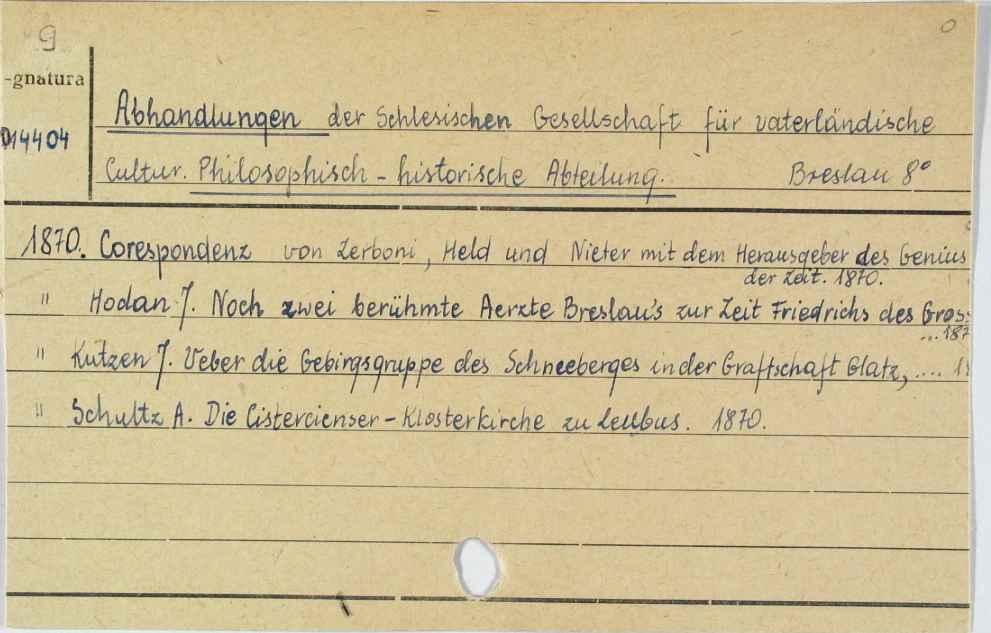 9
-gnatura
D14404
Abhandlungen der Schlesischen Gesellschaft für vaterländische
Cultur. Philosophisch-historische Abteilung. Breslau 8°
1870. Corespondenz von Zerboni, Held und Nieter mit dem Herausgeber des Genius
der Zeit. 1870.
" Hodan J. Noch zwei berühmte Aerzte Breslau's zur Zeit Friedrichs des Gros
...187
" Kutzen J. Ueber die Gebirgsgruppe des Schneeberges in der Graftschaft Glatz, .... 1
" Schultz A. Die Cistercienser-Klosterkirche zu Leubus. 1870.